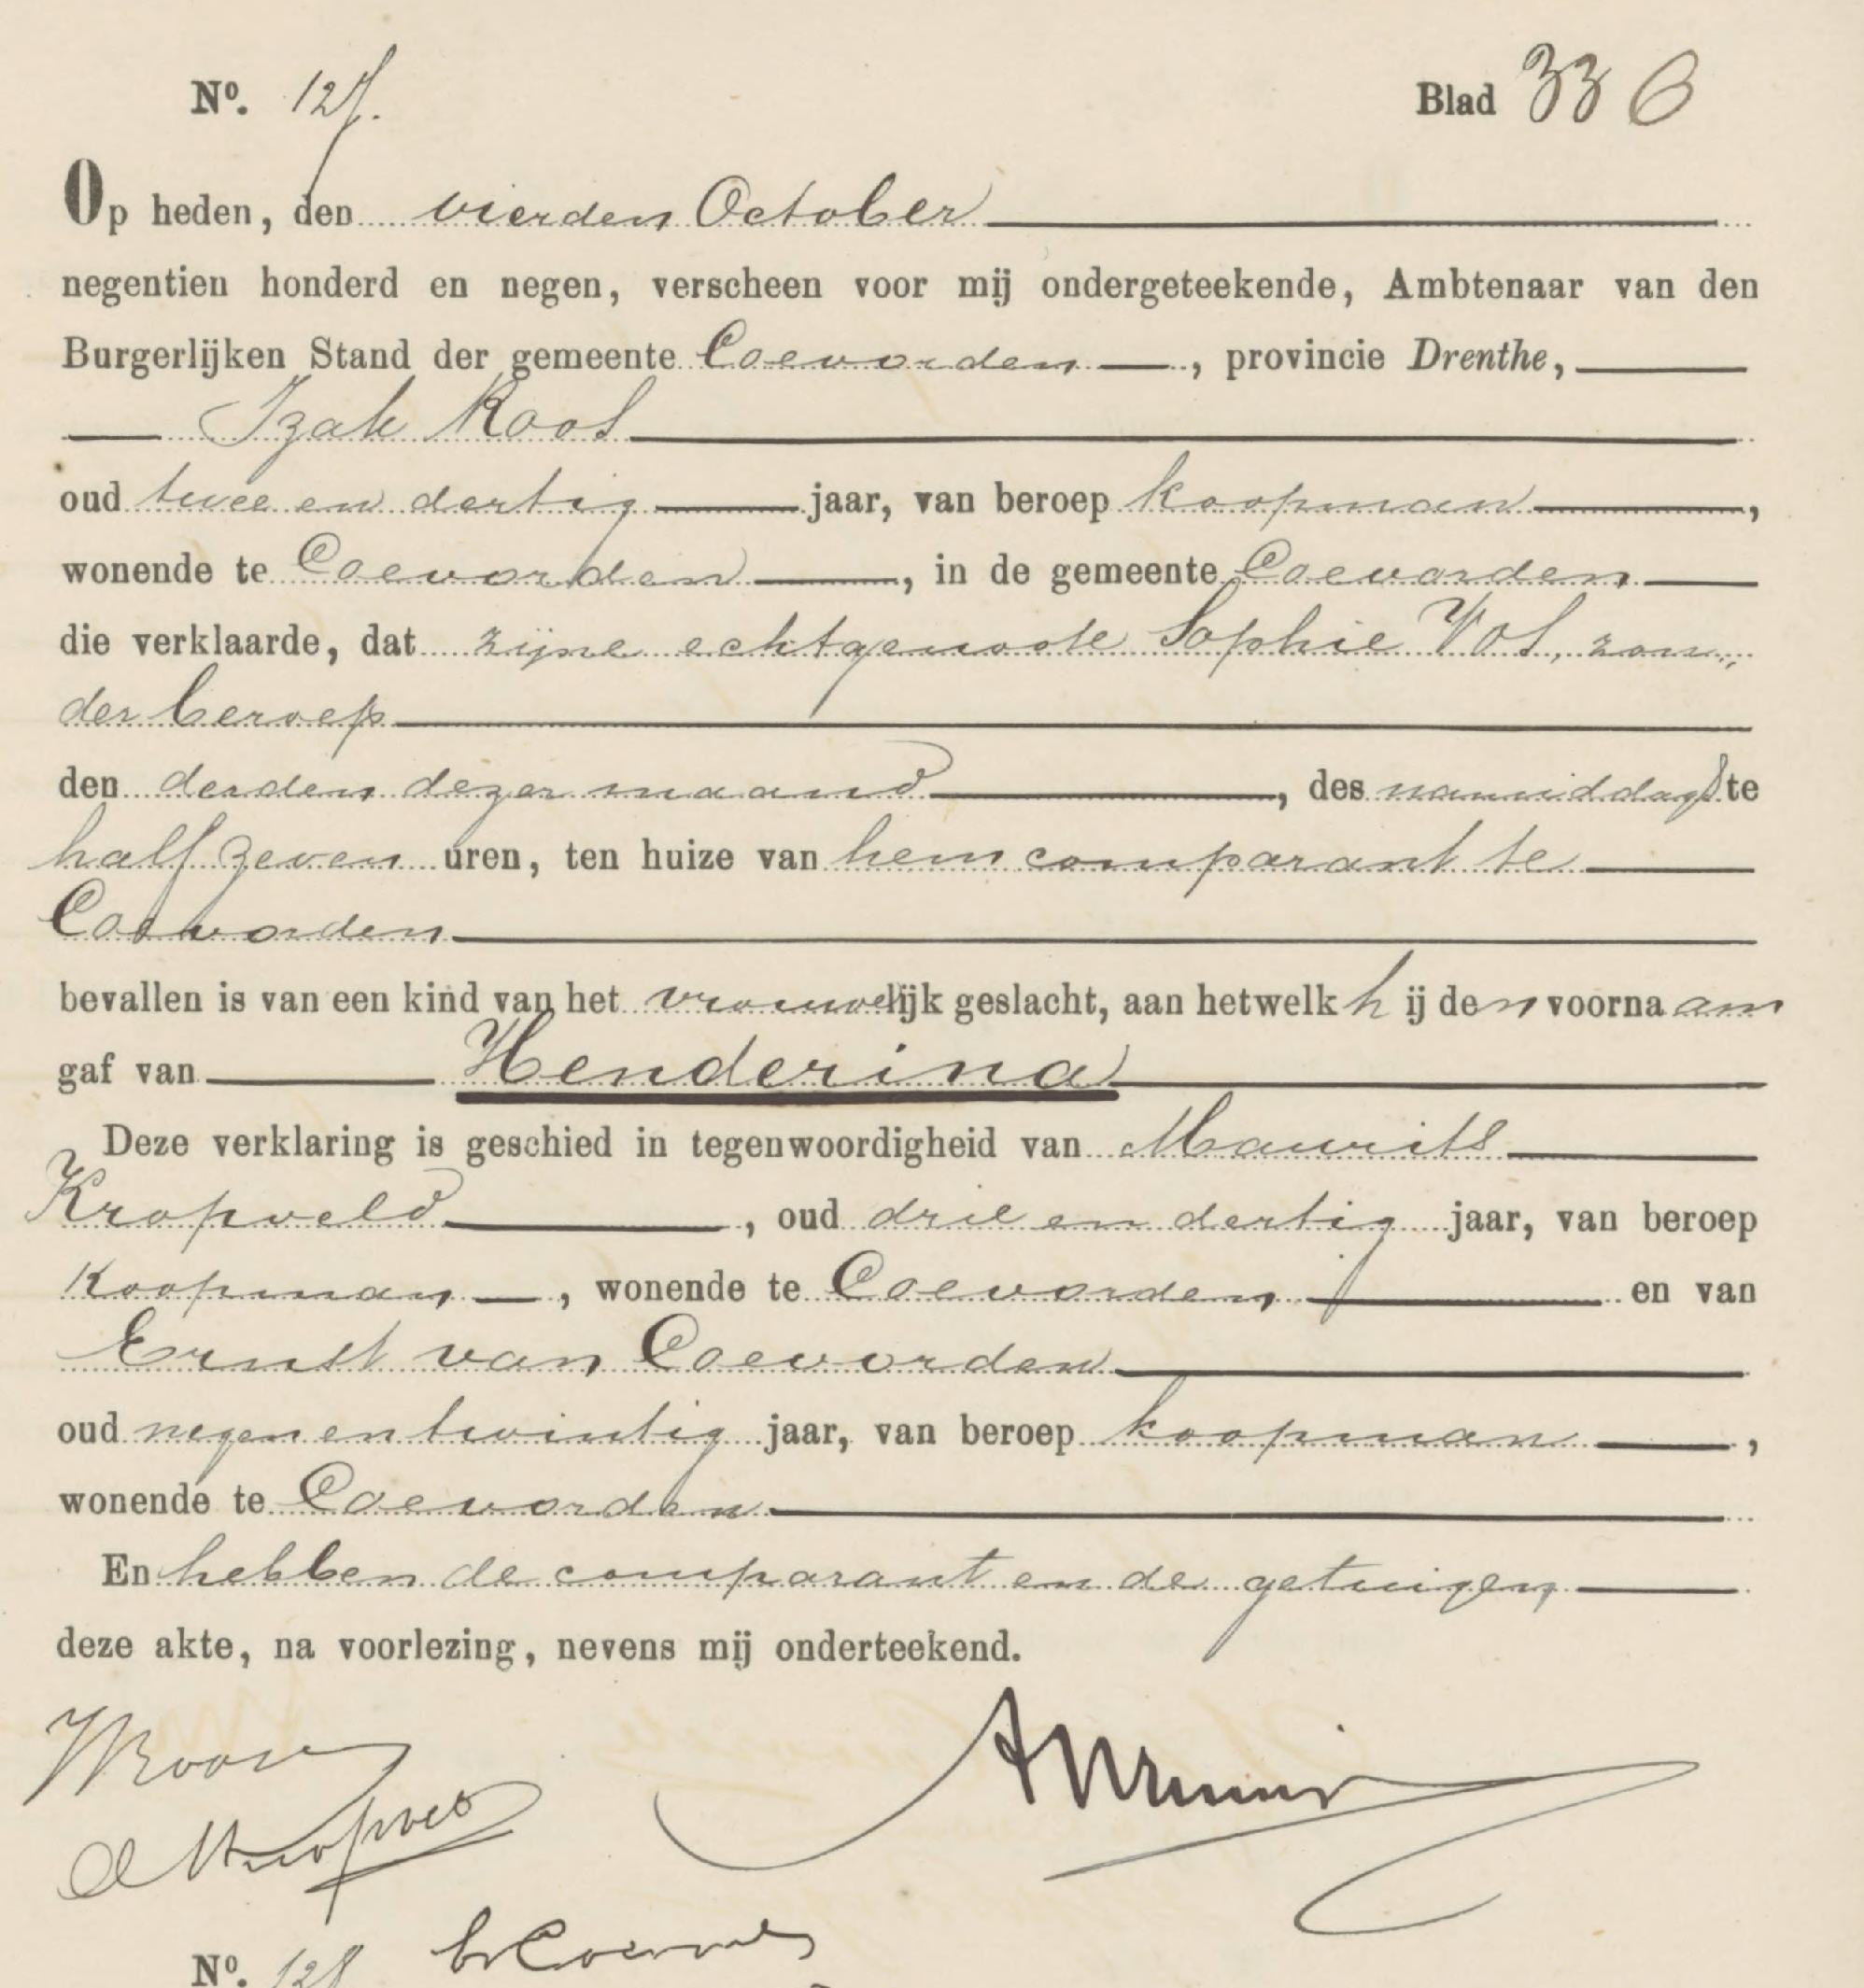 No. 127. Blad 336
Op heden, den vierden October
negentien honderd en negen, verscheen voor mij ondergeteekende, Ambtenaar van den
Burgerlijken Stand der gemeente Coevorden, provincie Drenthe,
Izak Roos
oud twee en dertig jaar, van beroep koopman,
wonende te Coevorden, in de gemeente Coevorden
die verklaarde, dat zijne echtgenoote Sophie Vos, zon„
der beroep
den derden dezer maand, des namiddags te
half zeven uren, ten huize van hem comparant te
Coevorden
bevallen is van een kind van het vrouwelijk geslacht, aan hetwelk hij den voornaam
gaf van Henderina
Deze verklaring is geschied in tegenwoordigheid van Maurits
Kropveld, oud drie en dertig jaar, van beroep
Koopman, wonende te Coevorden en van
Ernst van Coevorden
oud negen en twintig jaar, van beroep koopman,
wonende te Coevorden
En hebben de comparant en de getuigen
deze akte, na voorlezing, nevens mij onderteekend.
IRoos
No. 128